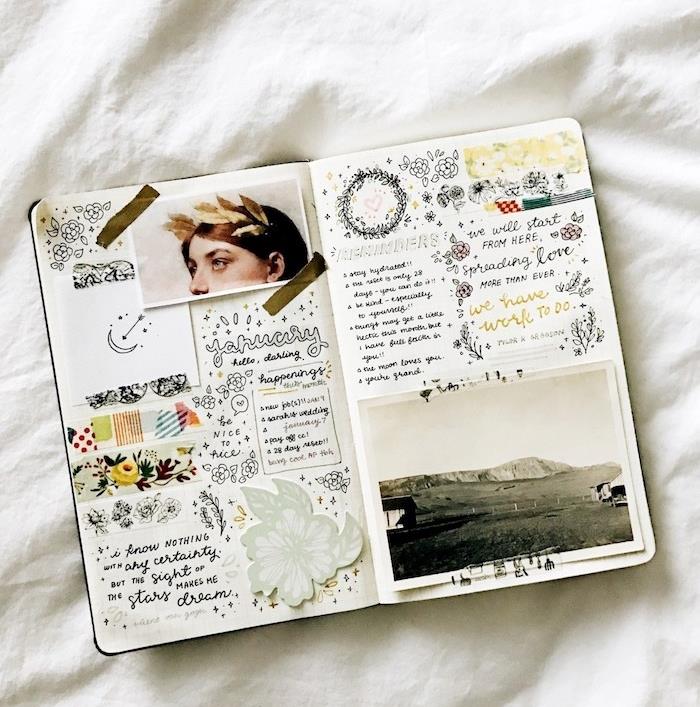 january
hello, darling
happenings
this month
new job(s)!! JAN 4
sarah's wedding
january 7
pay off cc!
28 day reset!!
being cool AF tbh
be
NICE
TO
nice
i know NOTHING
WITH any certainty.
BUT THE sight OF
THE stars MAKES ME
dream.
REMINDERS
stay hydrated!!
the reset is only 28
days - you can do it!!
be kind - especially
to yourself!!
things may get a little
hectic this month but
i have full faith in
you!!
the moon loves you.
you're grand.
we will start
FROM HERE,
spreading love
MORE THAN EVER.
we have
work TO DO.
TYLER K GREGSON